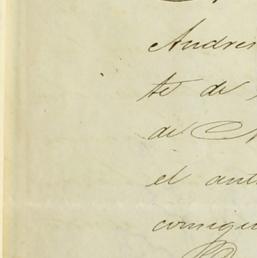 Andres
te de
de N
el ant
consigu